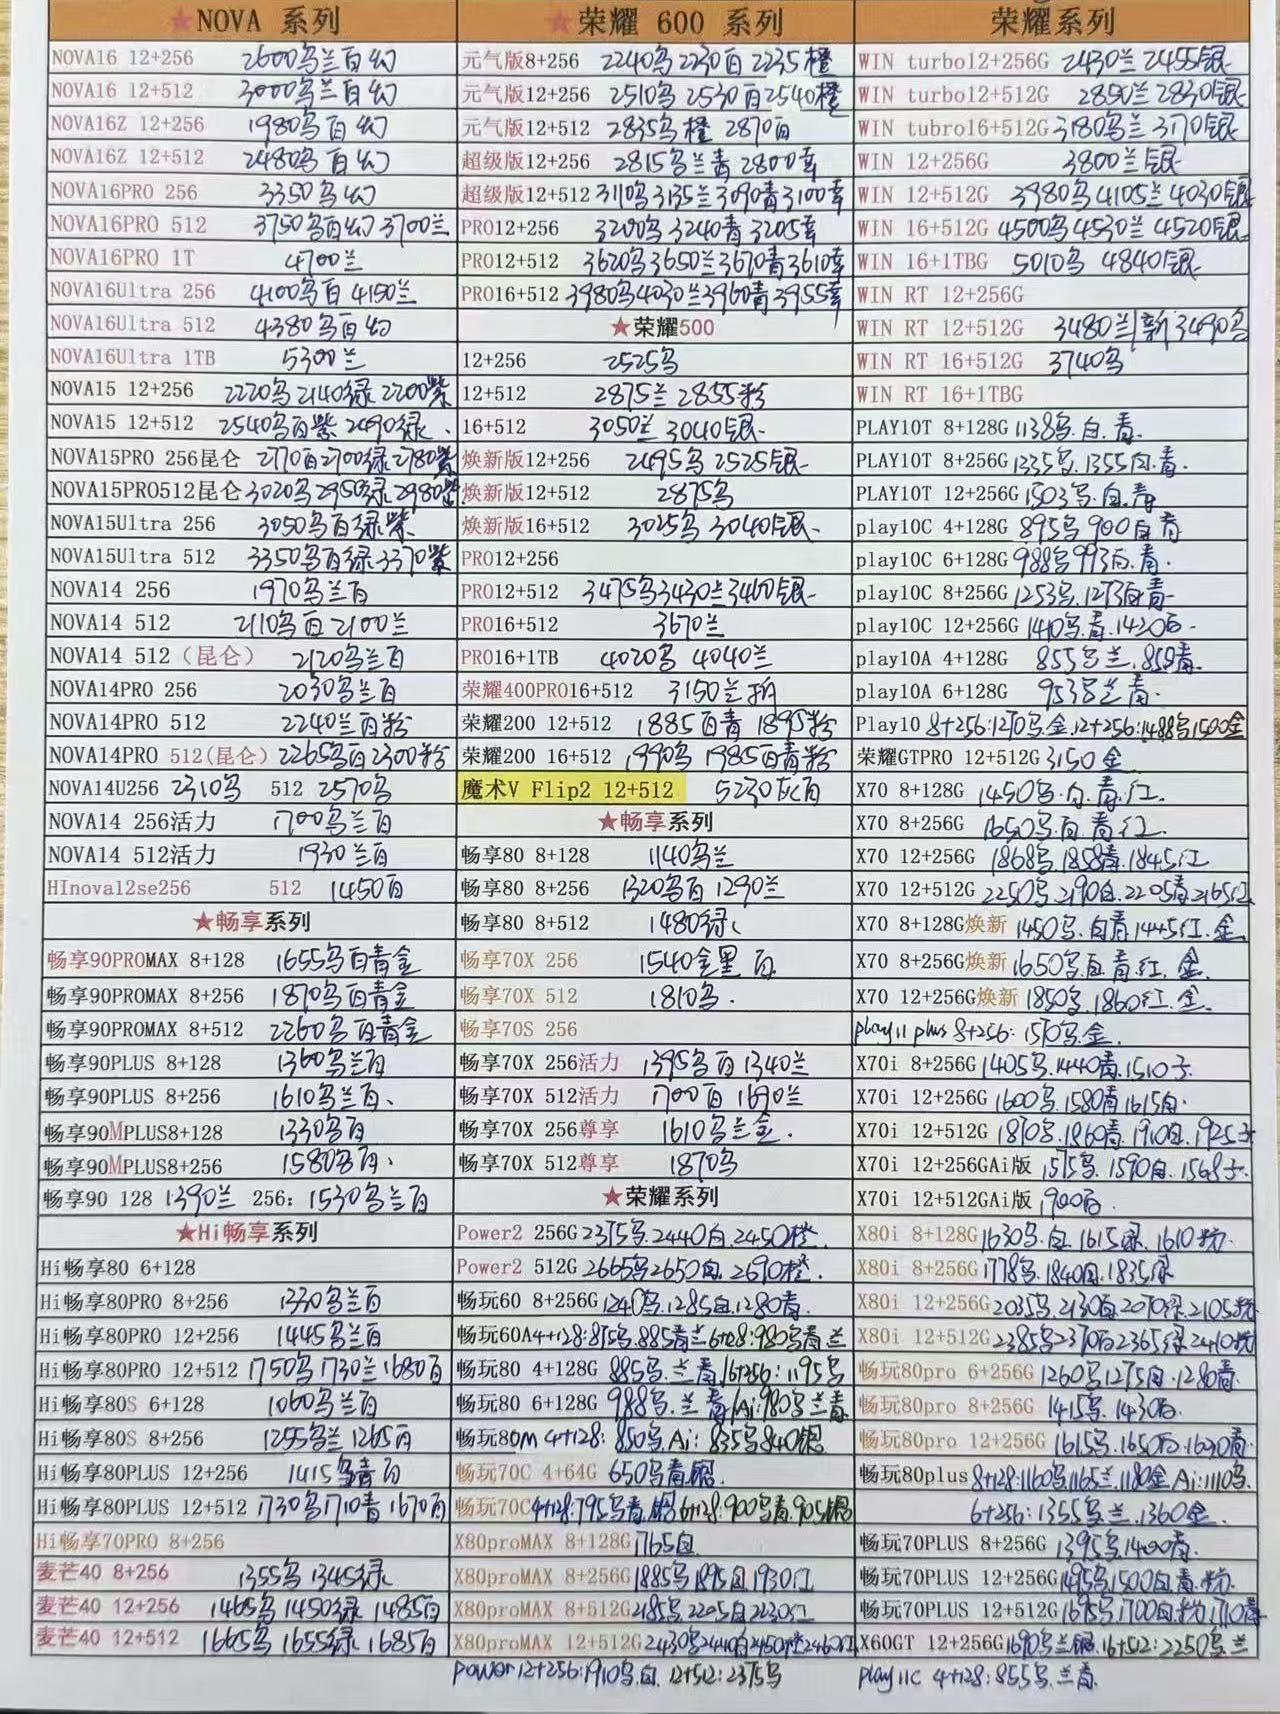 ★NOVA 系列
NOVA16 12+256 2600乌兰百幻
NOVA16 12+512 3000乌兰百幻
NOVA16Z 12+256 1980乌百幻
NOVA16Z 12+512 2480乌百幻
NOVA16PRO 256 3350乌幻
NOVA16PRO 512 3750乌百幻 3700兰
NOVA16PRO 1T 4700兰
NOVA16Ultra 256 4100乌百 4150兰
NOVA16Ultra 512 4380乌百幻
NOVA16Ultra 1TB 5300兰
NOVA15 12+256 2220乌 2140绿 2200紫
NOVA15 12+512 2540乌百紫 2490绿
NOVA15PRO 256昆仑 2770百2700绿2780紫
NOVA15PRO512昆仑 3020乌2950绿2980紫
NOVA15Ultra 256 3050乌百绿紫
NOVA15Ultra 512 3350乌百绿 3370紫
NOVA14 256 1970乌兰百
NOVA14 512 2110乌百 2100兰
NOVA14 512（昆仑） 2120乌兰百
NOVA14PRO 256 2030乌兰百
NOVA14PRO 512 2240兰百粉
NOVA14PRO 512(昆仑) 2265乌百2300粉
NOVA14U256 2310乌 512 2570乌
NOVA14 256活力 1700乌兰百
NOVA14 512活力 1930兰百
HInova12se256 512 1450百
★畅享系列
畅享90PROMAX 8+128 1655乌百青金
畅享90PROMAX 8+256 1870乌百青金
畅享90PROMAX 8+512 2260乌百青金
畅享90PLUS 8+128 1360乌兰百
畅享90PLUS 8+256 1610乌兰百、
畅享90MPLUS8+128 1330乌百
畅享90MPLUS8+256 1580乌百、
畅享90 128 1390兰 256: 1530乌兰百
★Hi畅享系列
Hi畅享80 6+128
Hi畅享80PRO 8+256 1330乌兰百
Hi畅享80PRO 12+256 1445乌兰百
Hi畅享80PRO 12+512 1750乌1730兰1680百
Hi畅享80S 6+128 1060乌兰百
Hi畅享80S 8+256 1255乌兰 1265百
Hi畅享80PLUS 12+256 1415乌青百
Hi畅享80PLUS 12+512 1730乌1710青 1670百
Hi畅享70PRO 8+256
麦芒40 8+256 1355乌 1345绿
麦芒40 12+256 1465乌 1450绿 1485百
麦芒40 12+512 1665乌 1655绿 1685百
★荣耀 600 系列
元气版8+256 2240乌 2230百 2235橙
元气版12+256 2510乌 2530百 2540橙
元气版12+512 2835乌橙 2870百
超级版12+256 2815乌兰青 2800幸
超级版12+512 3110乌3135兰3090青3100幸
PRO12+256 3200乌 3240青 3205幸
PRO12+512 3620乌3650兰3670青3610幸
PRO16+512 3980乌4030兰3960青3955幸
★荣耀500
12+256 2525乌
12+512 2875兰 2855粉
16+512 3050兰 3040银
焕新版12+256 2495乌 2525银
焕新版12+512 2875乌
焕新版16+512 3025乌 3040银
PRO12+256
PRO12+512 3475乌3430兰3460银
PRO16+512 3670兰
PRO16+1TB 4020乌 4040兰
荣耀400PRO16+512 3150兰
荣耀200 12+512 1885百青 1895粉
荣耀200 16+512 1990乌 1985百青粉
魔术V Flip2 12+512 5230灰百
★畅享系列
畅享80 8+128 1140乌兰
畅享80 8+256 1320乌百 1290兰
畅享80 8+512 1480绿、
畅享70X 256 1540金黑百
畅享70X 512 1810乌.
畅享70S 256
畅享70X 256活力 1395乌百 1340兰
畅享70X 512活力 1700百 1690兰
畅享70X 256尊享 1610乌兰金.
畅享70X 512尊享 1870乌
★荣耀系列
Power2 256G 2375乌.2440白.2450橙.
Power2 512G 2665乌2650白.2690橙.
畅玩60 8+256G 1240乌.1285白.1280青.
畅玩60A4+128:875乌.885青兰6+128:980乌青兰
畅玩80 4+128G 885乌.兰青.16+256: 1195乌
畅玩80 6+128G 988乌.兰青/Ai:980乌兰青
畅玩80M 4+128: 850乌.Ai: 835乌840银
畅玩70C 4+64G 650乌青银.
畅玩70C4+128:795乌青.银6+128:900乌青.905银
X80proMAX 8+128G 1765白
X80proMAX 8+256G 1885乌.1895白.1930红
X80proMAX 8+512G 2185乌.2205白2230红
X80proMAX 12+512G 2430乌2440白2450 2460红
power12+256:1910乌.白. 12+512:2375乌
荣耀系列
WIN turbo12+256G 2430兰 2455银
WIN turbo12+512G 2850兰 2830银
WIN tubro16+512G 3180乌兰 3170银
WIN 12+256G 3800兰银
WIN 12+512G 3980乌4105兰4030银
WIN 16+512G 4500乌4530兰 4520银
WIN 16+1TBG 5010乌 4840银
WIN RT 12+256G
WIN RT 12+512G 3480兰|新3490乌
WIN RT 16+512G 3740乌
WIN RT 16+1TBG
PLAY10T 8+128G 1138乌.白.青.
PLAY10T 8+256G 1335乌.1355白.青.
PLAY10T 12+256G 1503乌.白.青
play10C 4+128G 895乌 900白青
play10C 6+128G 988乌993白.青.
play10C 8+256G 1253乌.1273白青
play10C 12+256G 1410乌.青.1420白
play10A 4+128G 855乌兰.859青.
play10A 6+128G 953乌兰青.
Play10 8+256:1270乌.金,12+256:1488乌1500金
荣耀GTPRO 12+512G 3150金
X70 8+128G 1450乌.白.青.红.
X70 8+256G 1650乌.白.青红.
X70 12+256G 1868乌.1858青.1845红
X70 12+512G 2250乌.2190白.2205青2165红
X70 8+128G焕新 1450乌.白青1445红.金
X70 8+256G焕新 1650乌.白青.红.金.
X70 12+256G焕新 1850乌.1860红.金.
play11 plus 8+256: 1570乌.金.
X70i 8+256G 1405乌.1440青.1510子
X70i 12+256G 1600乌.1580青1615白.
X70i 12+512G 1870乌.1860青.1910白.1925子
X70i 12+256GAi版 1575乌.1590白.1568子.
X70i 12+512GAi版 1900白.
X80i 8+128G 1630乌.白.1615绿.1610粉
X80i 8+256G 1778乌.1840白.1835绿
X80i 12+256G 2035乌.2130白2070绿.2105粉
X80i 12+512G 2385乌2370白2365绿2410粉
畅玩80pro 6+256G 1260乌1275白.1280青.
畅玩80pro 8+256G 1415乌.1430白.
畅玩80pro 12+256G 1615乌.1650白1630青.
畅玩80plus 8+128:1160乌1165兰.1180金.Ai:1110乌
6+256: 1355乌.兰.1360金.
畅玩70PLUS 8+256G 1395乌.1400青.
畅玩70PLUS 12+256G 1495乌1500白.青.粉.
畅玩70PLUS 12+512G 1695乌.1700白.粉.1710青
X60GT 12+256G 1690乌兰银.16+512:2250乌.兰
play11C 4+128:855乌.兰青.